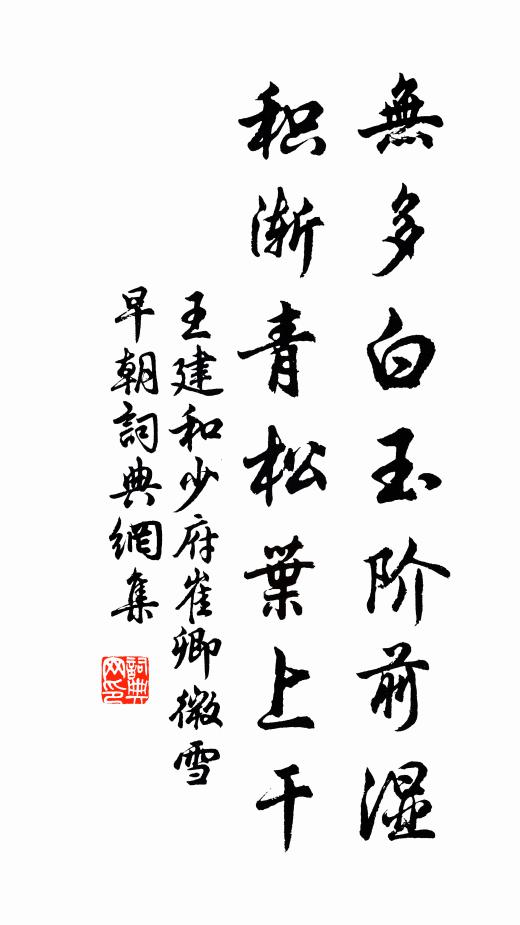 無多白玉阶前湿
积渐青松葉上干
王建和少府崔卿微雪
早朝詞典網集
詞典网印